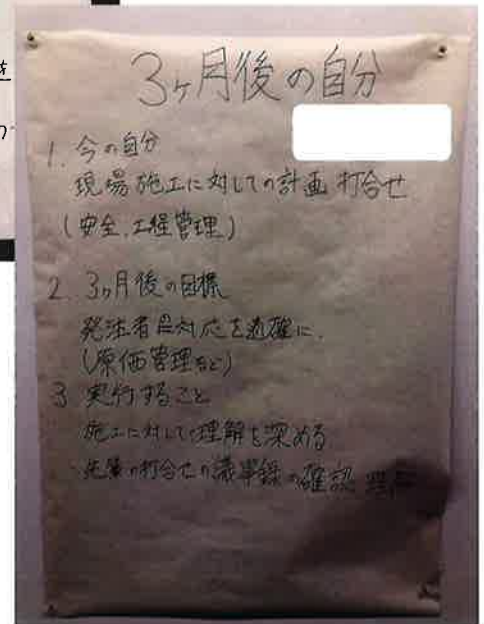 3ヶ月後の自分
1. 今の自分
現場施工に対しての計画 打合せ
(安全、工程管理)
2. 3ヶ月後の目標
発注者 対応を適確に、
(原価管理など)
3 実行すること
施工に対しての理解を深める
・先輩の打合せの議事録の確認